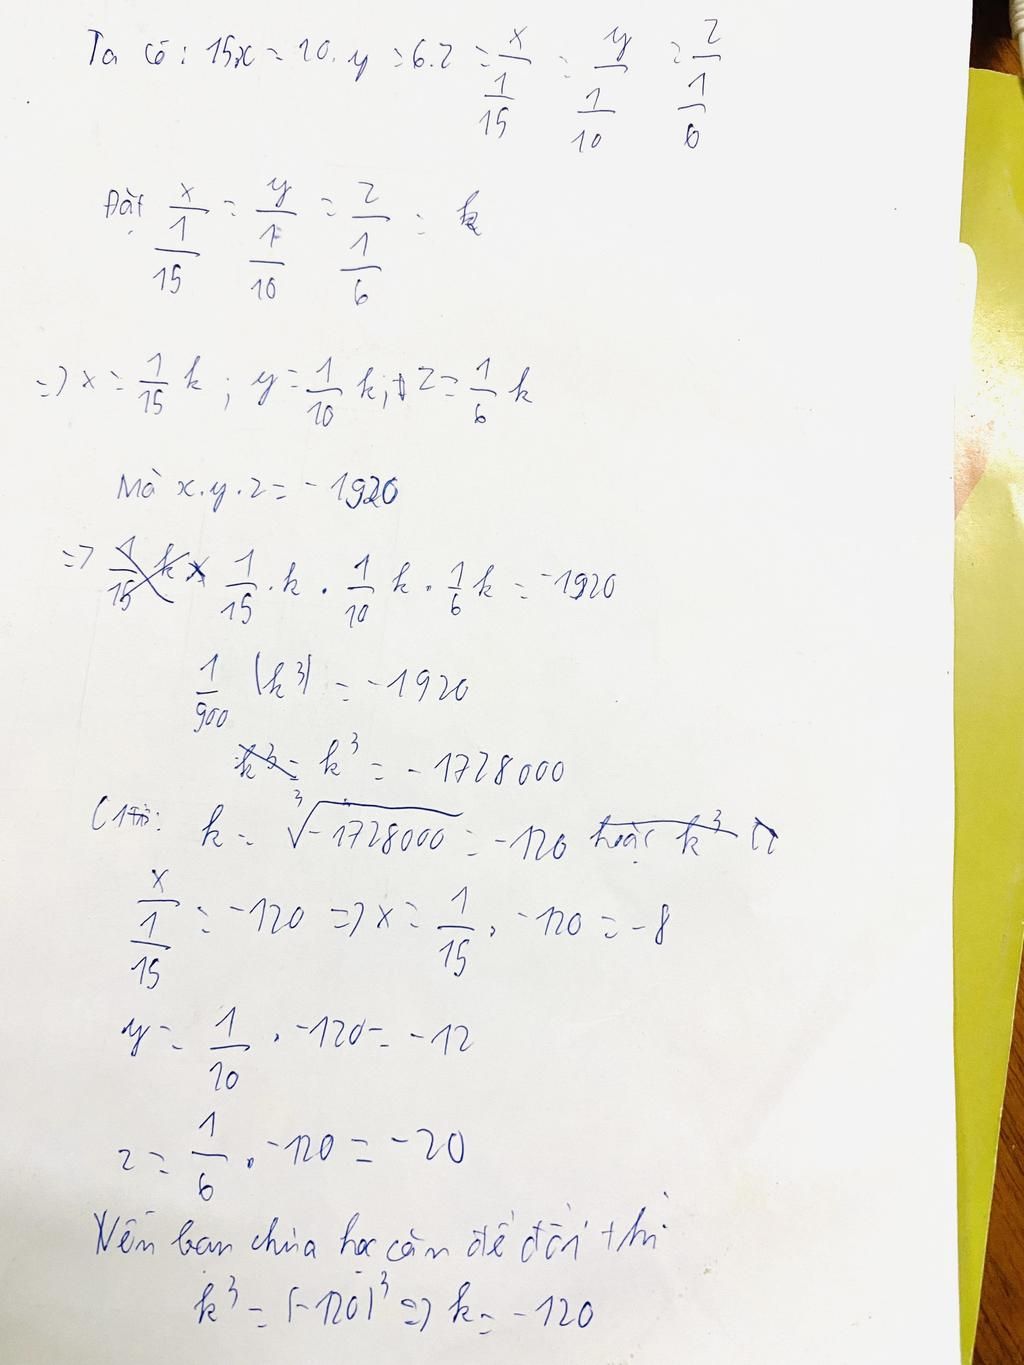 Ta có: 15x = 10.y = 6.z = x/(1/15) = y/(1/10) = z/(1/6)
Đặt x/(1/15) = y/(1/10) = z/(1/6) = k
=> x = 1/15 k ; y = 1/10 k ; z = 1/6 k
Mà x.y.z = -1920
=> 1/15 . k . 1/10 k . 1/6 k = -1920
1/900 (k³) = -1920
k³ = -1728000
k = ³√-1728000 = -120
x/(1/15) = -120 => x = 1/15 . -120 = -8
y = 1/10 . -120 = -12
z = 1/6 . -120 = -20
Nến bạn chưa học căn để đổi thì
k³ = (-120)³ => k = -120